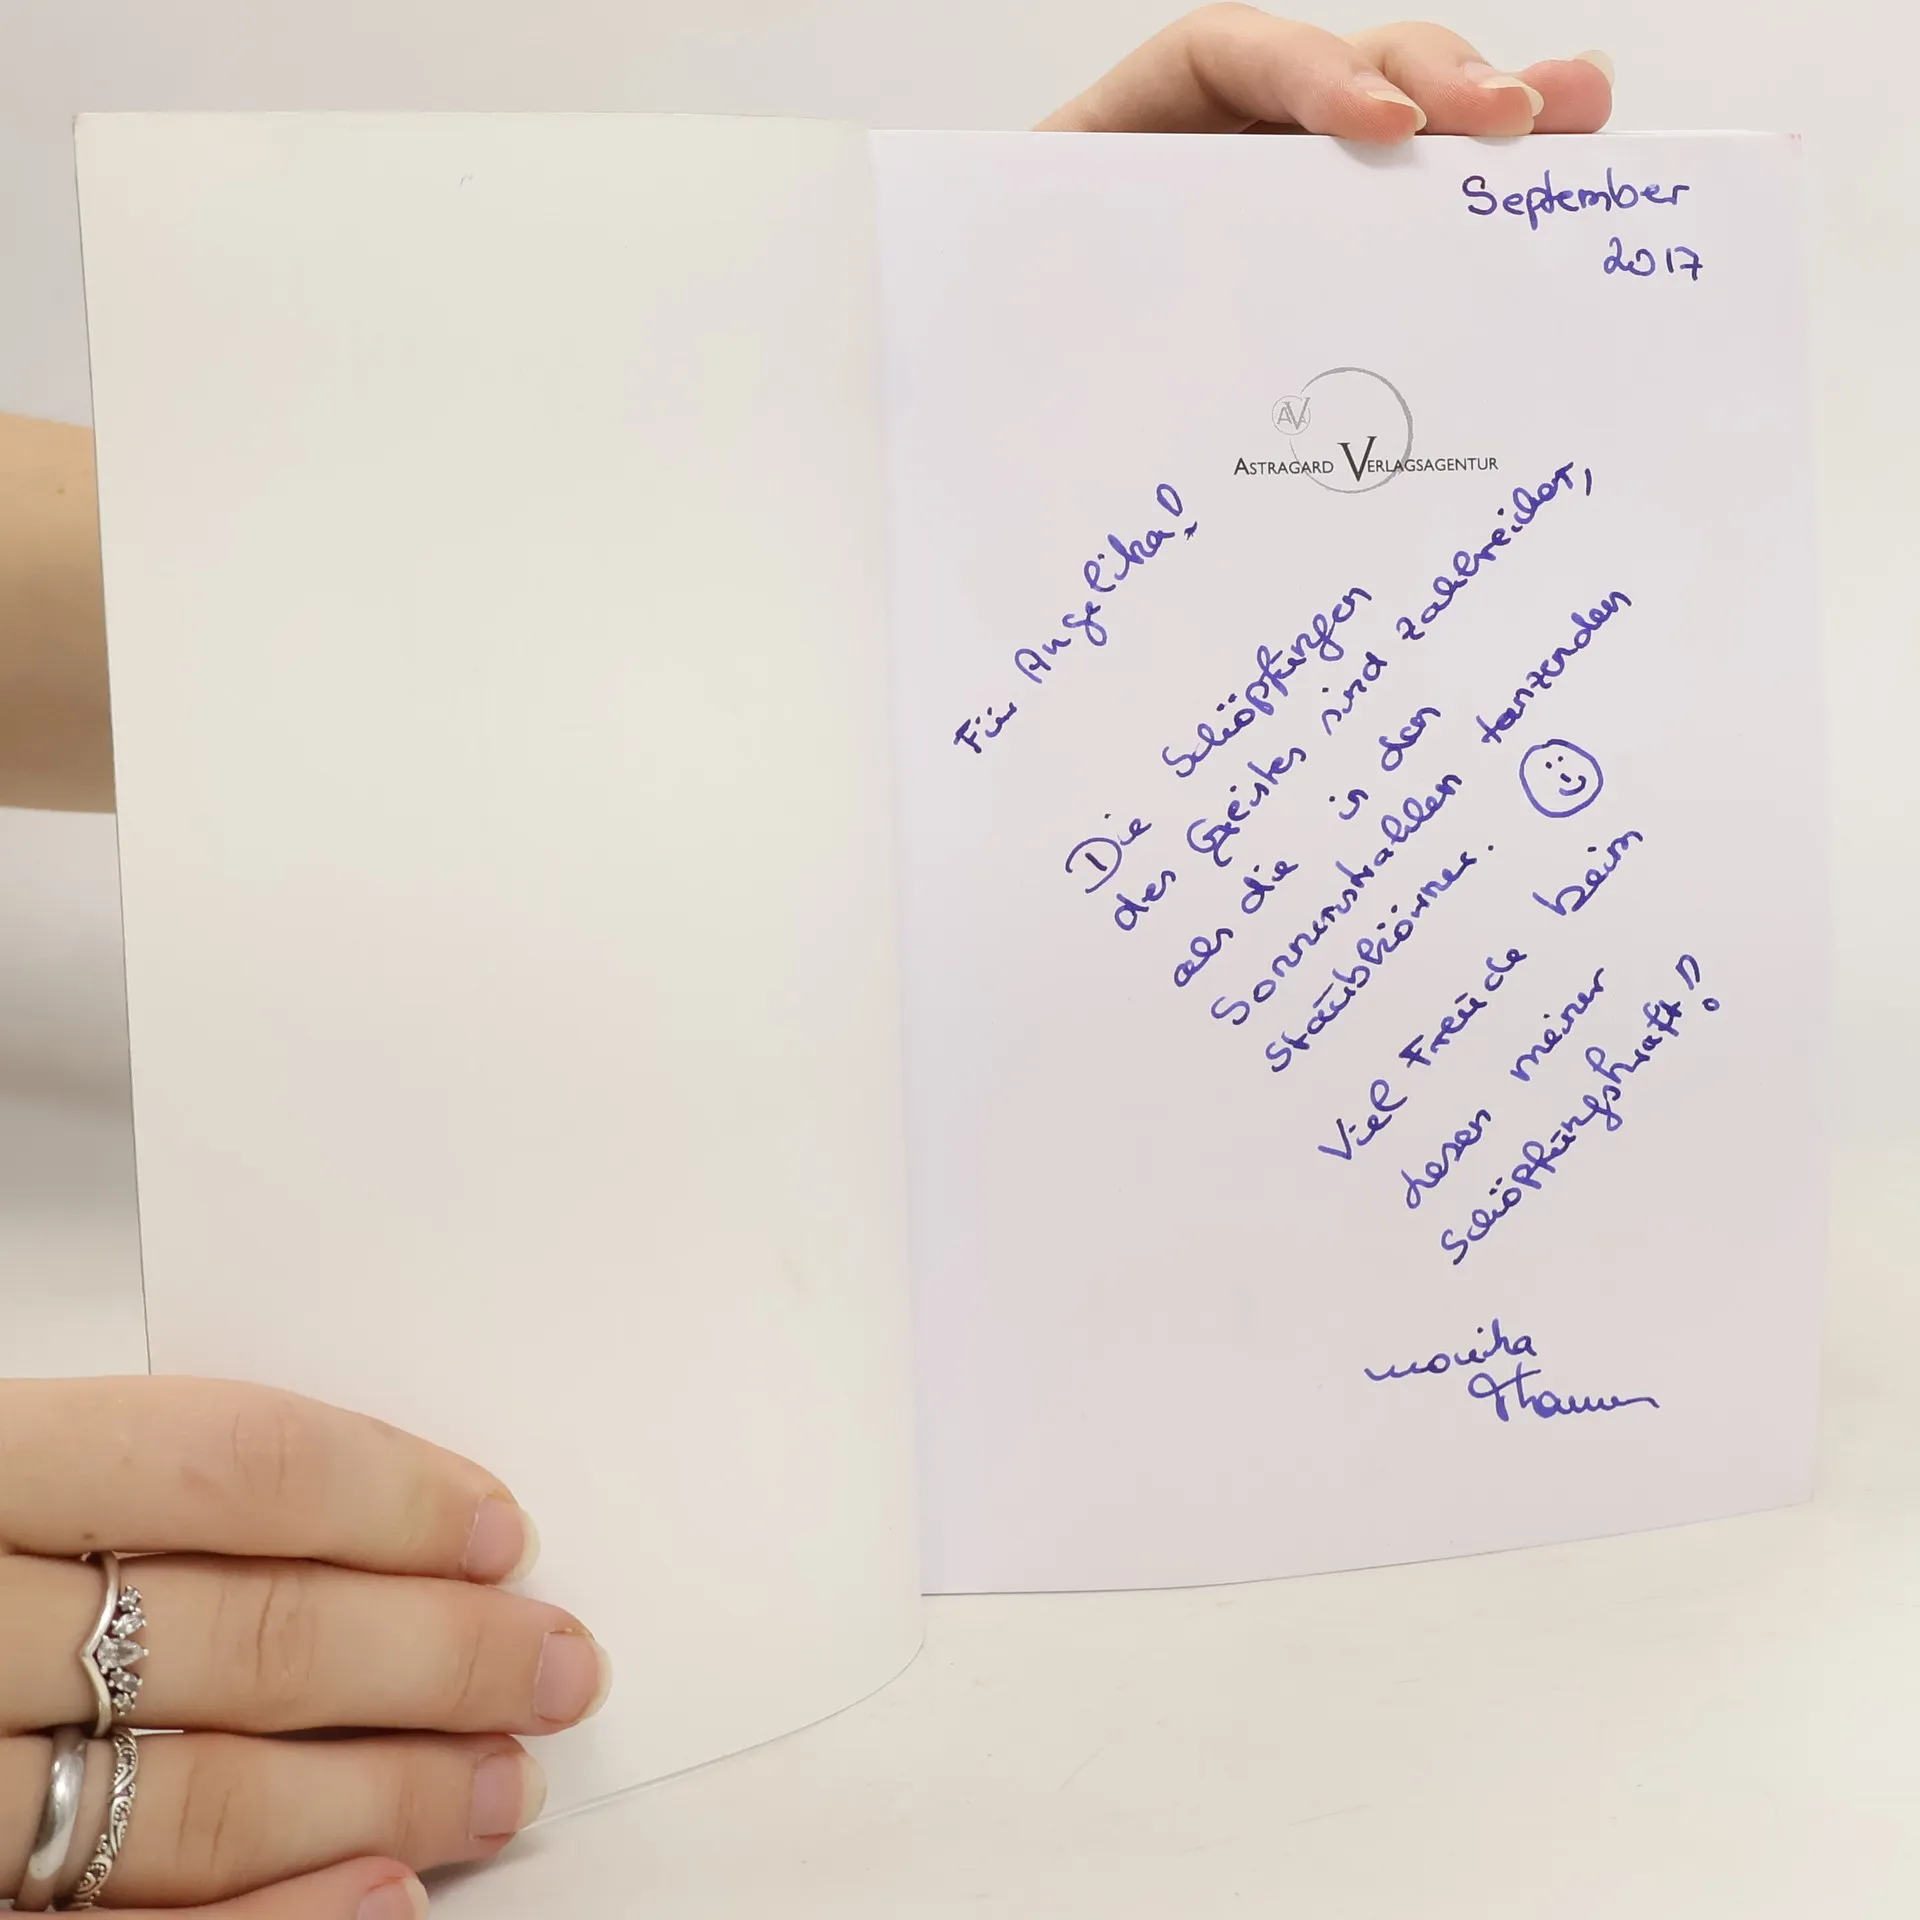 September
2017
AV
ASTRAGARD VERLAGSAGENTUR
Für Angelika!
Die Schöpfungen
des Geistes sind zahlreicher,
als die in den
Sonnenstrahlen tanzenden
Staubkörner.
Viel Freude beim
Lesen meiner
Schöpfungskraft!
Monika